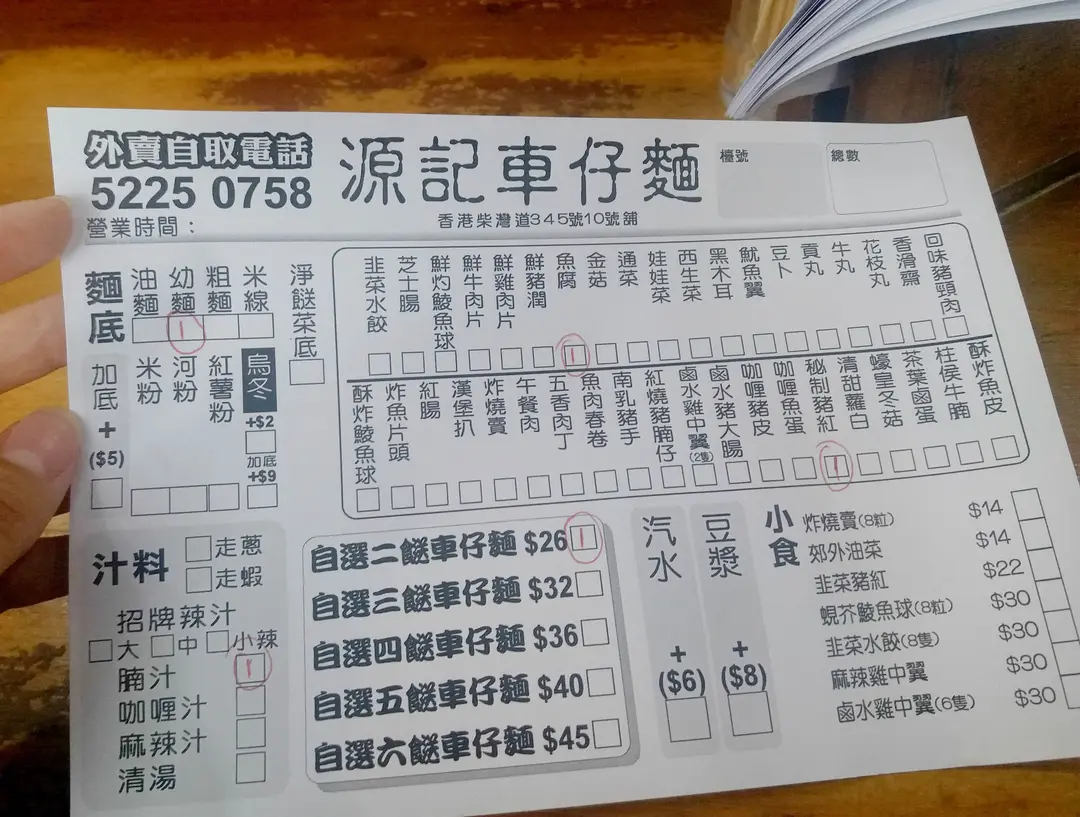 外賣自取電話
5225 0758
營業時間：
源記車仔麵
香港柴灣道345號10號舖
檯號
總數
麵底
油麵
幼麵
粗麵
米線
淨餸菜底
1
加底
+
($5)
米粉
河粉
紅薯粉
烏冬
+$2
加底
+$9
韭菜水餃
芝士腸
鮮灼鯪魚球
鮮牛肉片
鮮雞肉片
鮮豬潤
魚腐
金菇
通菜
娃娃菜
西生菜
黑木耳
魷魚翼
豆卜
貢丸
牛丸
花枝丸
香滑齋
回味豬頸肉
1
酥炸鯪魚球
炸魚片頭
紅腸
漢堡扒
炸燒賣
午餐肉
五香肉丁
魚肉春卷
南乳豬手
紅燒豬腩仔
鹵水雞中翼(2隻)
鹵水豬大腸
咖喱豬皮
咖喱魚蛋
秘制豬紅
清甜蘿白
蠔皇冬菇
茶葉鹵蛋
柱侯牛腩
酥炸魚皮
1
汁料
走蔥
走蝦
招牌辣汁
大 中 小辣
腩汁 1
咖喱汁
麻辣汁
清湯
自選二餸車仔麵 $26 1
自選三餸車仔麵 $32
自選四餸車仔麵 $36
自選五餸車仔麵 $40
自選六餸車仔麵 $45
汽水
+
($6)
豆漿
+
($8)
小食
炸燒賣(8粒) $14
郊外油菜 $14
韭菜豬紅 $22
蜆芥鯪魚球(8粒) $30
韭菜水餃(8隻) $30
麻辣雞中翼 $30
鹵水雞中翼(6隻) $30